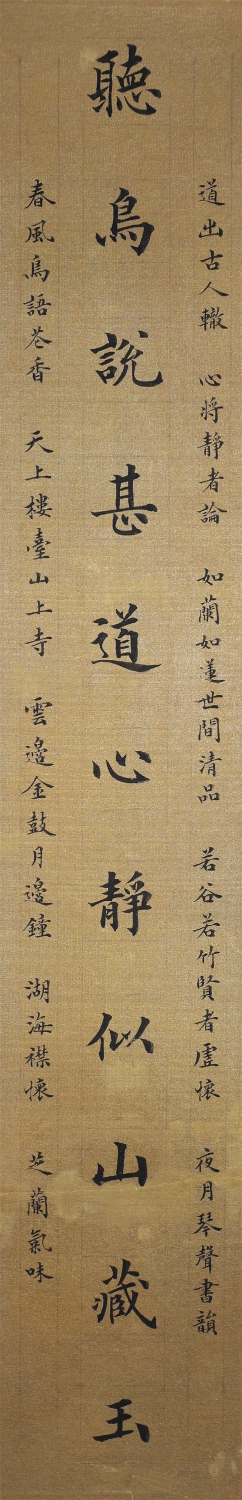 道出古人轍 心將靜者論 如蘭如蓮世間清品 若谷若竹賢者虛懷 夜月琴聲書韻
聽鳥說甚道心靜似山藏玉
春風鳥語花香 天上樓臺山上寺 雲邊金鼓月邊鐘 湖海襟懷 芝蘭氣味